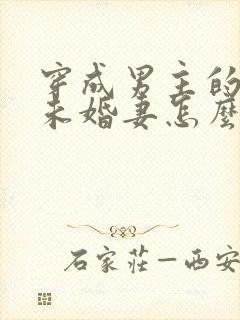 穿成男主的
未婚妻怎麼
石家莊—西安